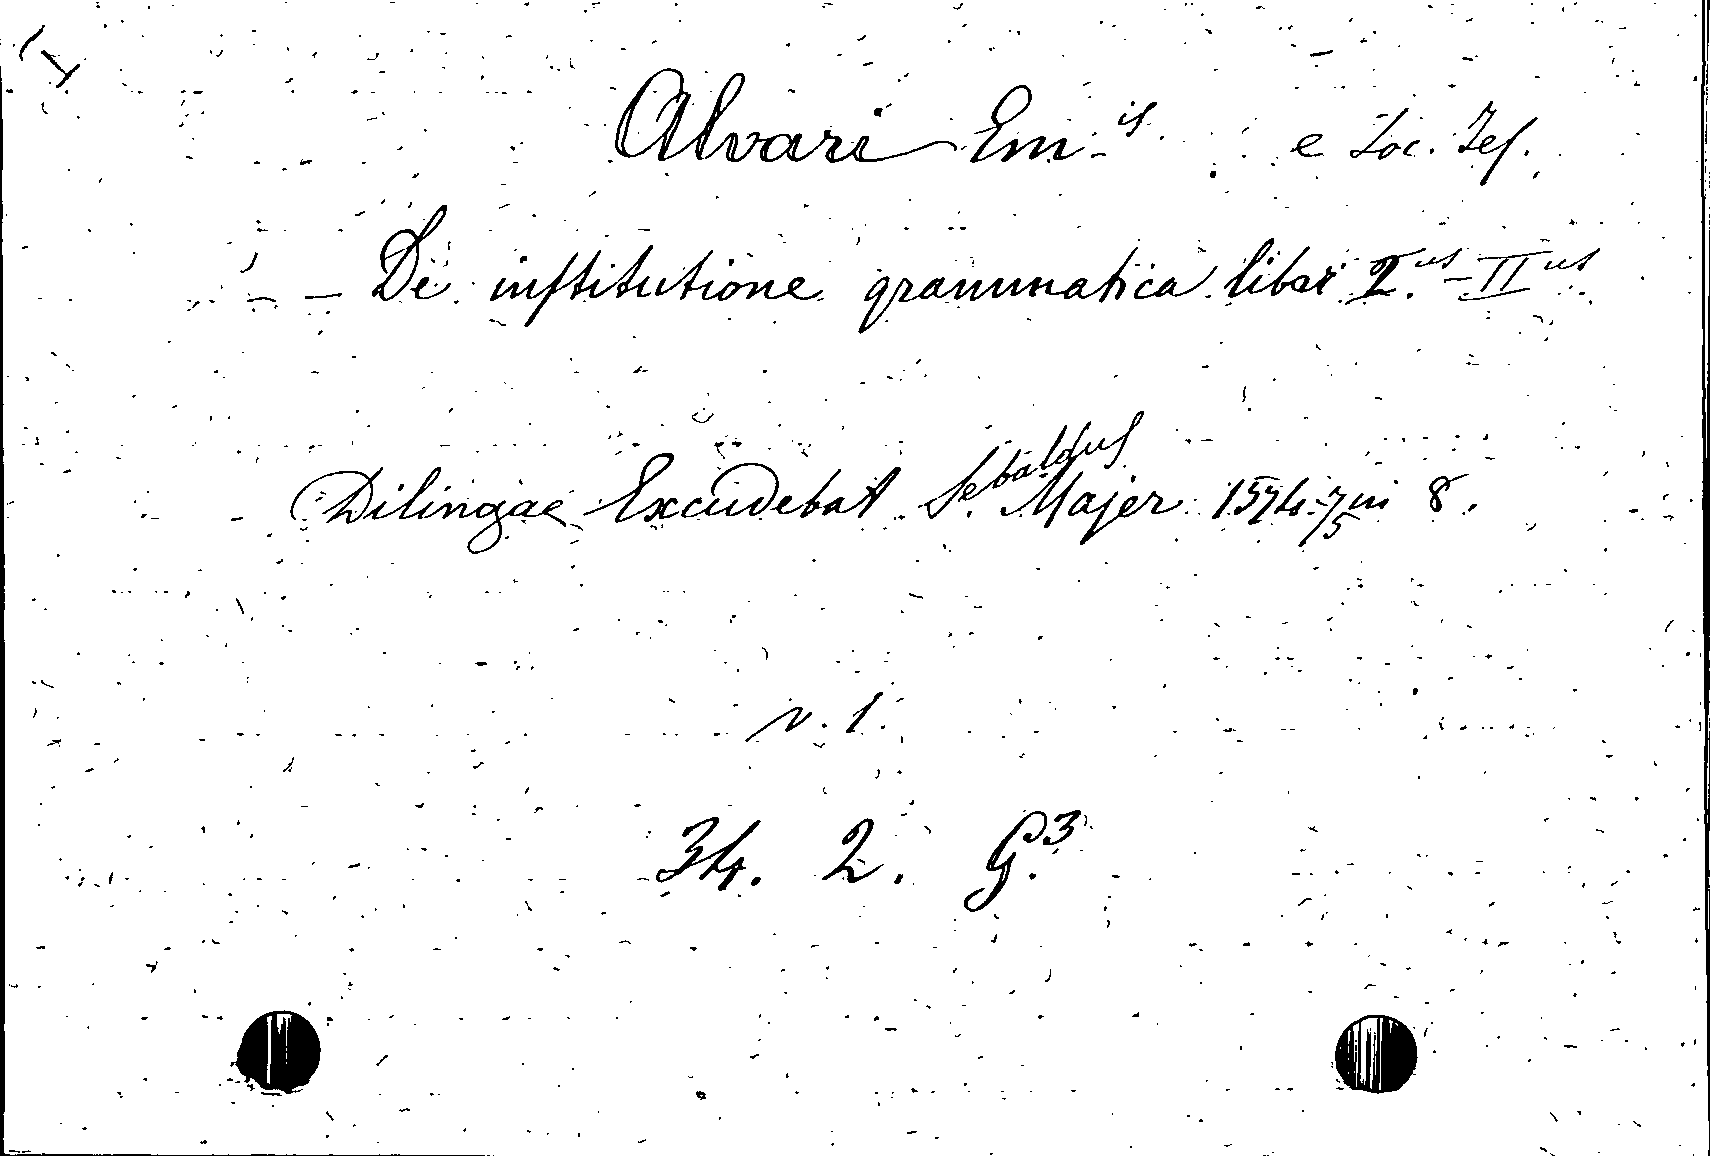 Alvari Em.is e Soc. Jes.
De institutione grammatica libri 2.us - II us
Dilingae Excudebat Sebaldus Majer 1574-75 in 8.
v. 1.
34. 2. G.3